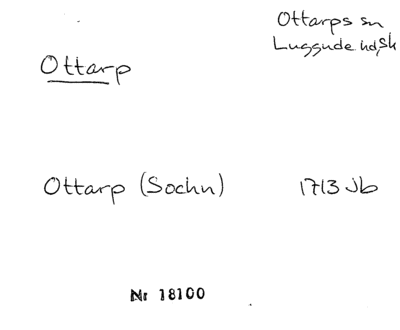 Ottarps sn
Luggude hd, Sk
Ottarp
Ottarp (Sochn) 1713 Jb
Nr 18100